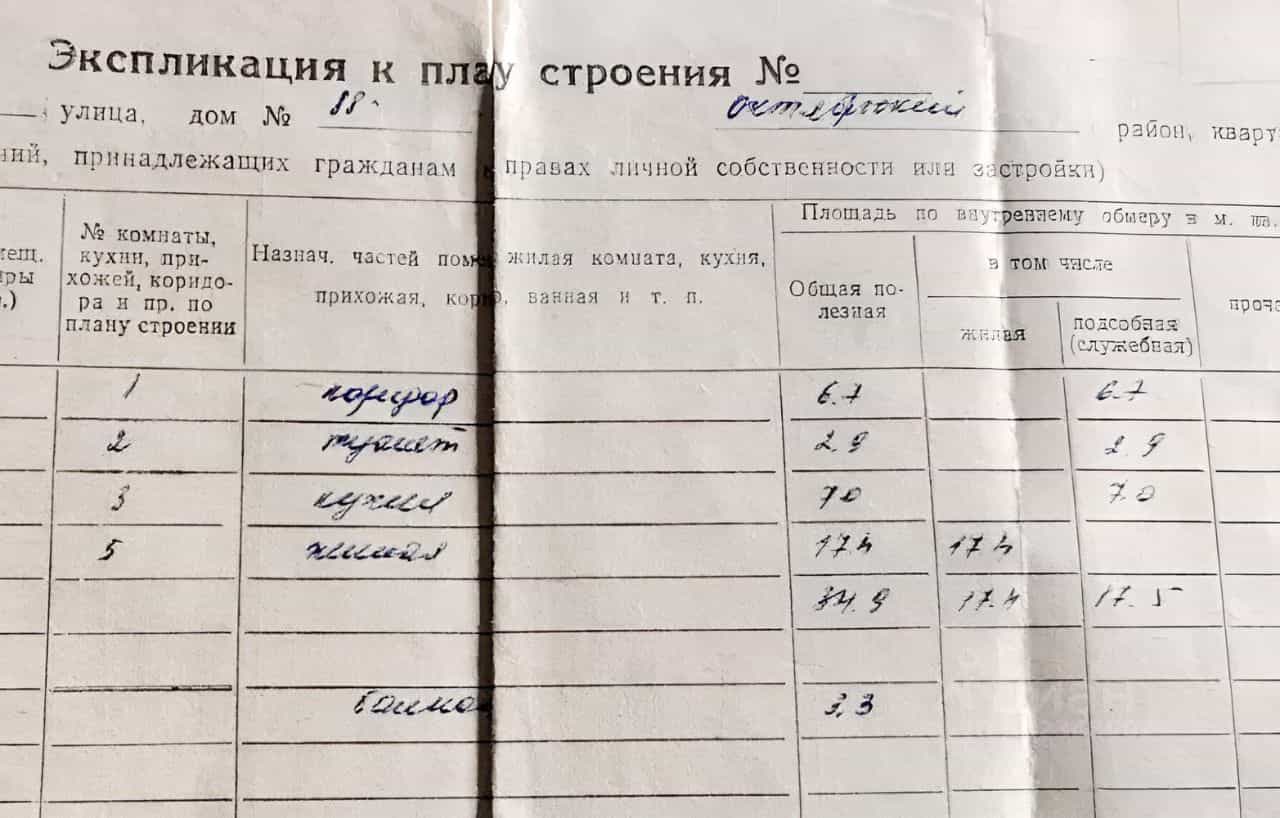 Экспликация к плау строения №
улица, дом № 88 октябрьский район, кварт
ний, принадлежащих гражданам правах личной собственности или застройки)
ещ. № комнаты, Площадь по внутреннему обмеру в м. кв.
ры кухни, при- Назнач. частей поме жилая комната, кухня, в том числе
.) хожей, коридо- Общая по-
ра и пр. по прихожая, кор , ванная и т. п. лезная проче
плану строении жилая подсобная
(служебная)
1 коридор 6.7 6.7
2 туалет 2.9 2.9
3 кухня 7.0 7.0
5 жилая 17.4 17.4
34.9 17.4 17.5
балко 3,3